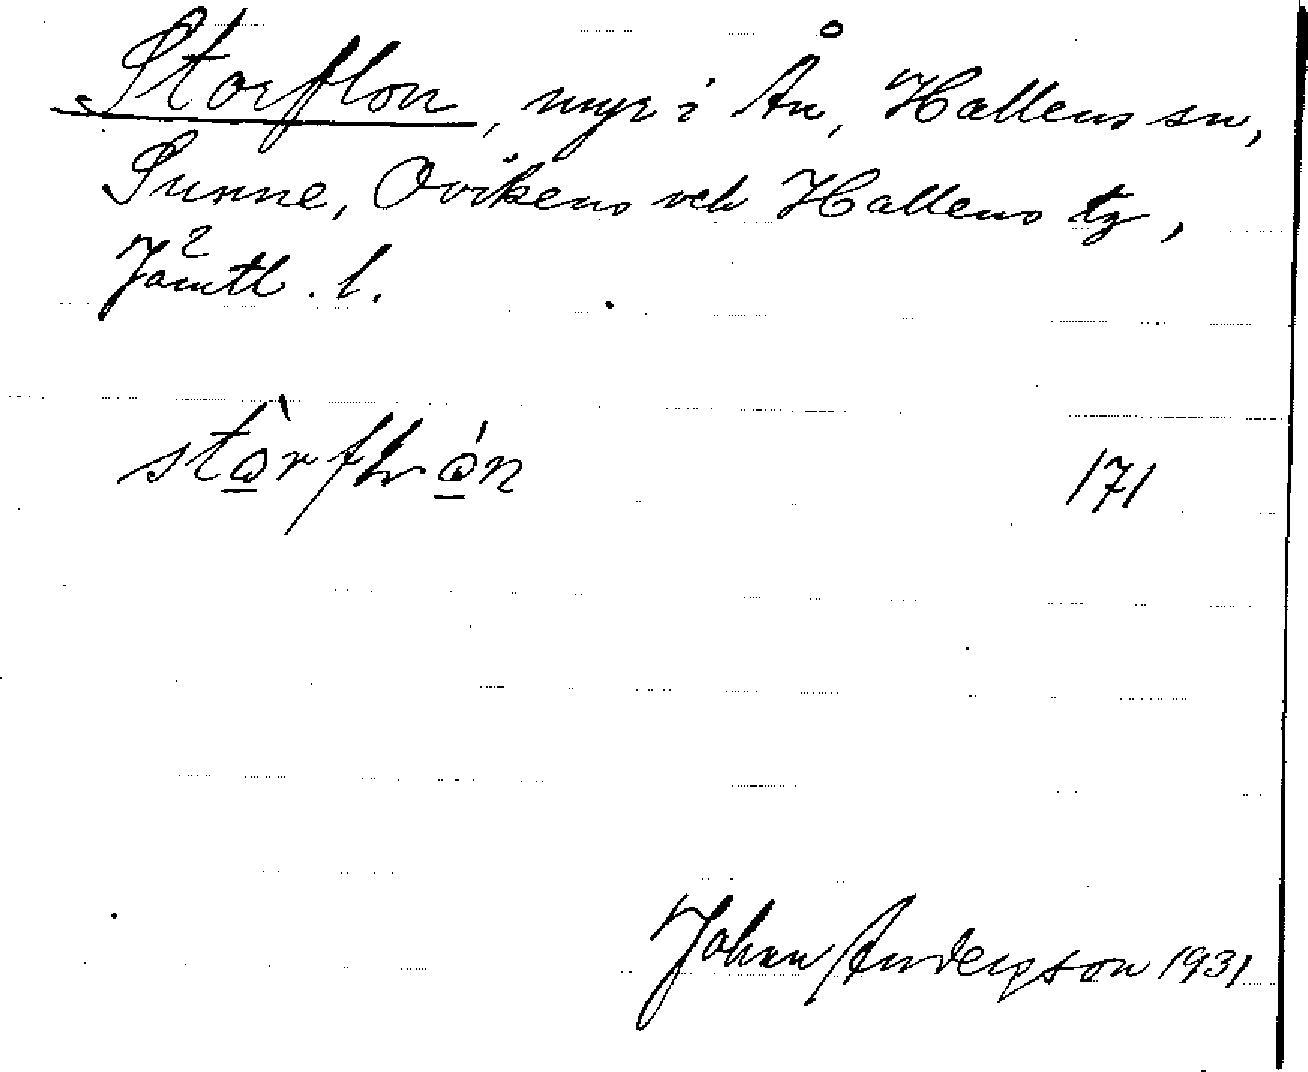 Storflon, myr i Ån, Hallens sn,
Sunne, Ovikens och Hallens tg,
Jämtl. l.
stǫ̀rflǫ́n 171
Johan Anderson 1931